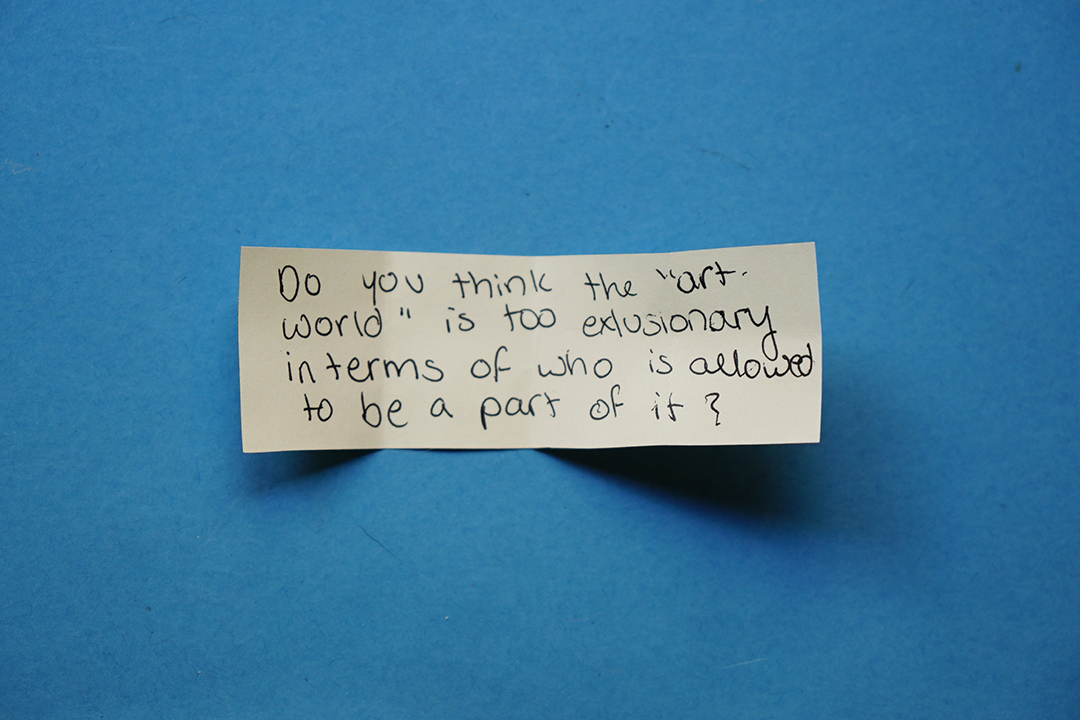 Do you think the "art.
world" is too exlusionary
in terms of who is allowed
to be a part of it?